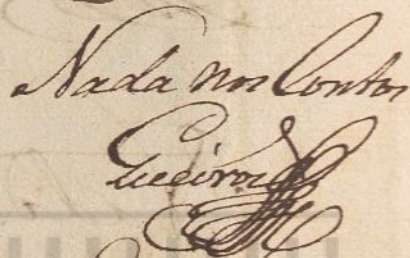 Nada nos Contos
Queiroz